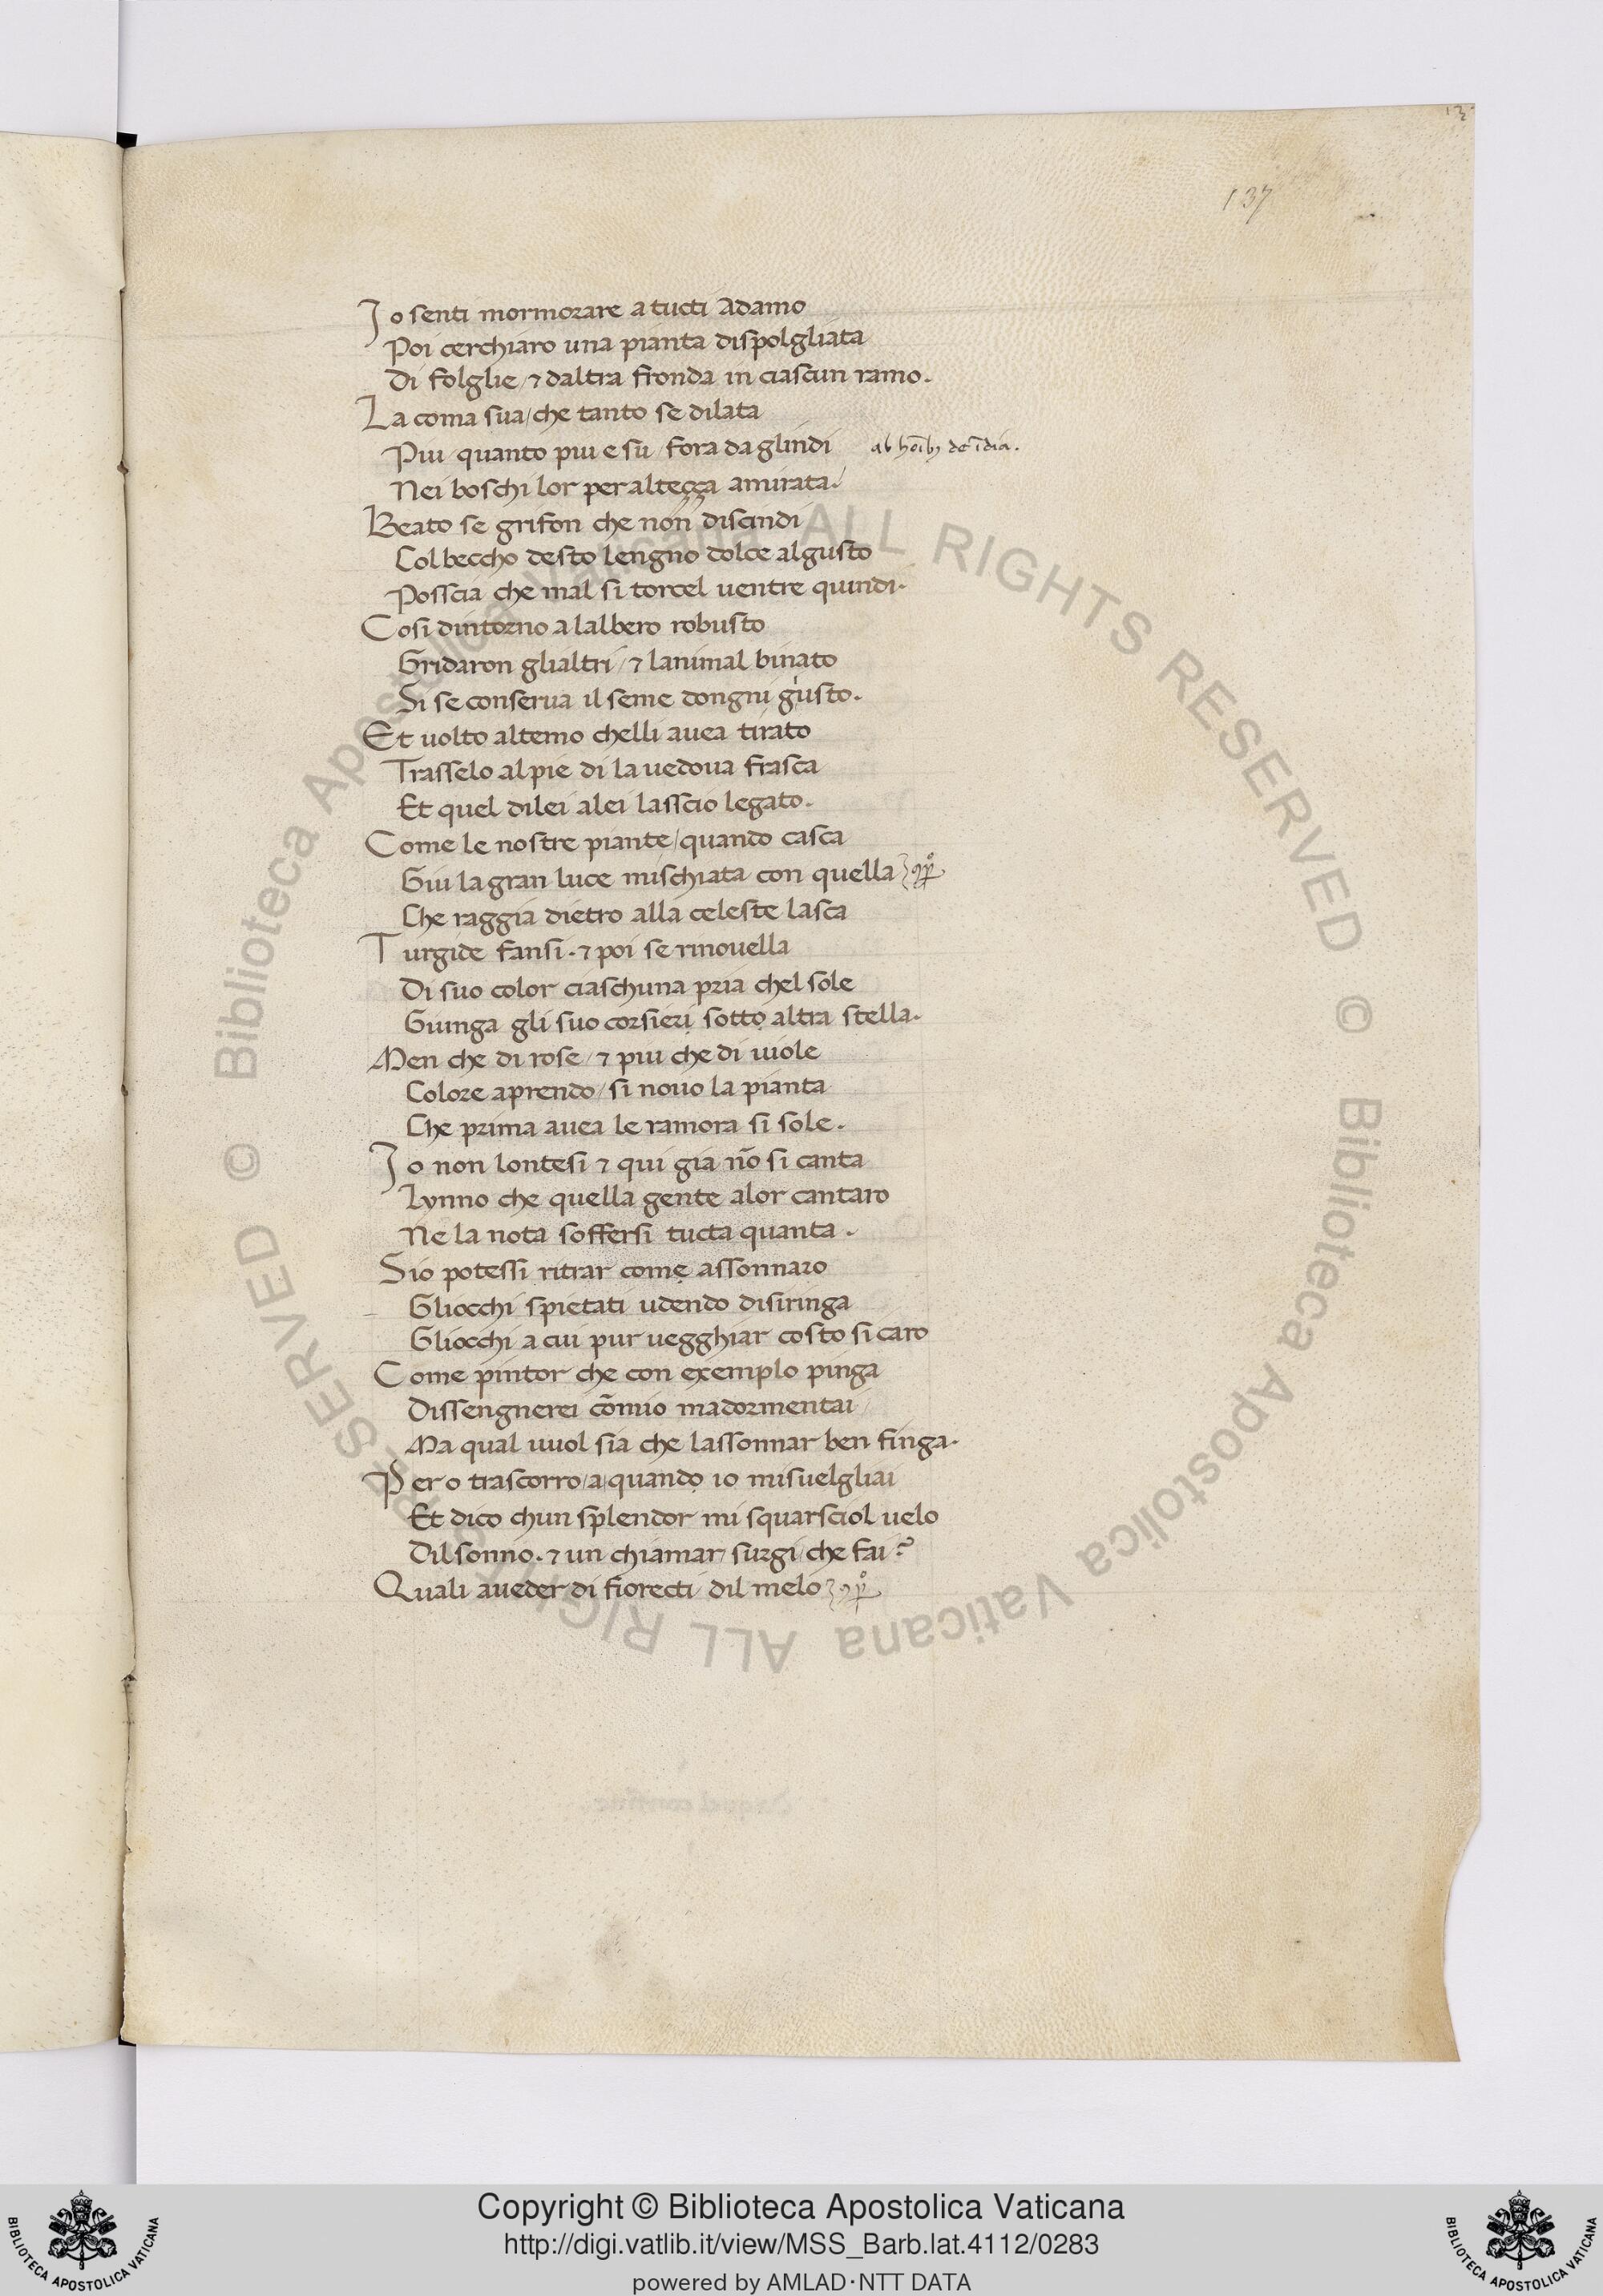 137
Io senti mormorare a tucti Adamo
Poi cerchiaro una pianta dispolgliata
Di folglie / ⁊ daltra fronda in ciascun ramo.
La coma sua / che tanto se dilata
Piu / quanto piu e su / fora da glindi
ab hoīb; de īdia.
Nei boschi lor per altecça amirata.
Beato se grifon che non discindi
Col beccho desto lengno dolce algusto
Posscia che mal si torcel uentre quindi.
Cosi dintorno a lalbero robusto
Gridaron glialtri / ⁊ lanimal binato
Si se conserua il seme dongni giusto.
Et uolto altemo chelli auea tirato
Trasselo alpie di la uedoua frasca
Et quel dilei alei lasscio legato.
Come le nostre piante / quando casca
Giu la gran luce mischiata con quella
Che raggia dietro alla celeste lasca
Turgide fansi. ⁊ poi se rinouella
Di suo color ciaschuna pria chel sole
Giunga gli suo corsieri sotto altra stella.
Men che di rose / ⁊ piu che di uiole
Colore aprendo / si nouo la pianta
Che prima auea le ramora si sole.
Io non lontesi ⁊ qui gia nō si canta
Lynno che quella gente alor cantaro
Ne la nota soffersi tucta quanta.
Sio potessi ritrar come assonnaro
Gliocchi spietati udendo disiringa
Gliocchi a cui pur uegghiar costo si caro
Come pintor che con exemplo pinga
Dissengnerei cōmio madormentai
Ma qual uuol sia che lassonnar ben finga.
Pero trascorro / a quando io misuelgliai
Et dico chun splendor mi squarsciol uelo
Dil sonno. ⁊ un chiamar / surgi / che fai?
Quali aueder di fiorecti dil melo
Biblioteca Apostolica Vaticana ALL RIGHTS RESERVED ©
Biblioteca Apostolica Vaticana ALL RIGHTS RESERVED ©
Copyright © Biblioteca Apostolica Vaticana
http://digi.vatlib.it/view/MSS_Barb.lat.4112/0283
powered by AMLAD·NTT DATA
BIBLIOTECA APOSTOLICA VATICANA
BIBLIOTECA APOSTOLICA VATICANA